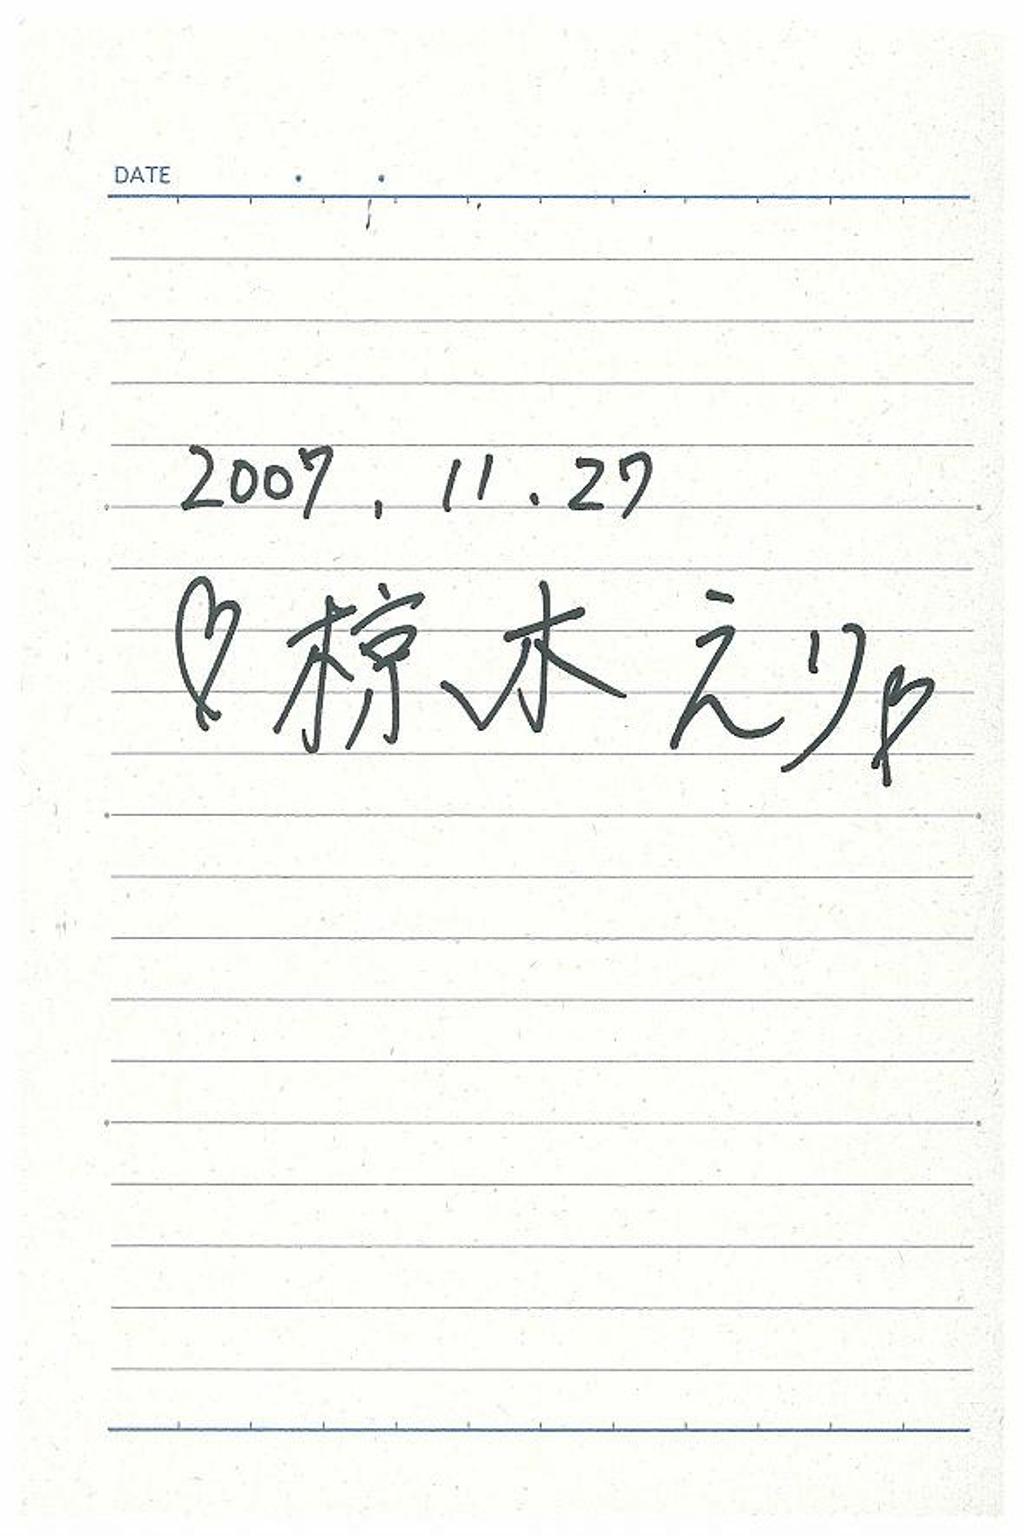 DATE . .
2007. 11. 27
♡椋木えり♡